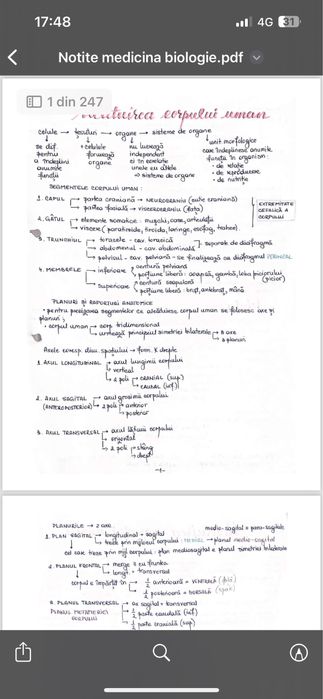 17:48
4G 31
Notite medicina biologie.pdf
1 din 247
corpului uman
celule → țesuturi → organe → sisteme de organe
se dif.
pentru
a îndeplini
anumite
funcții
celulele
formează
organe
nu lucrează
independent
ci în corelație
unele cu altele
⇒ sisteme de organe
unit. morfologice
care îndeplinesc anumite
funcții în organism:
- de relație
- de reproducere
- de nutriție
SEGMENTELE CORPULUI UMAN:
1. CAPUL → partea craniană → NEUROCRANIU (cutia craniană)
→ partea facială → VISCEROCRANIU (fața)
EXTREMITATE
CEFALICĂ A
CORPULUI
2. GÂTUL → elemente somatice: mușchi, oase, articulații
→ viscere (paratiroide, tiroida, laringe, esofag, trahee).
3. TRUNCHIUL → toracele - cav. toracică
→ abdomenul - cav. abdominală
separate de diafragmă
→ pelvisul - cav. pelviană - se finalizează cu diafragmul PERINEAL
4. MEMBRELE → inferioare → centură pelviană
→ porțiune liberă: coapsă, gambă, laba piciorului
(picior)
→ superioare → centură scapulară
→ porțiune liberă: braț, antebraț, mână
PLANURI ȘI RAPORTURI ANATOMICE
• pentru precizarea segmentelor ce alcătuiesc corpul uman se folosesc axe și
planuri;
• corpul uman → corp tridimensional
→ urmează principiul simetriei bilaterale → 3 axe
→ 3 planuri
Axele coresp. dim. spațiului → form. ∢ drepte
1. AXUL LONGITUDINAL → axul lungimii corpului
→ vertical
→ 2 poli → CRANIAL (sup)
→ CAUDAL (inf)
2. AXUL SAGITAL → axul grosimii corpului
(ANTEROPOSTERIOR) → 2 poli → anterior
→ posterior
3. AXUL TRANSVERSAL → axul lățimii corpului
→ orizontal
→ 2 poli → stâng
→ drept
-1-
PLANURILE → 2 axe
medio-sagital ≠ para-sagitale
1. PLAN SAGITAL → longitudinal + sagital
→ trece prin mijlocul corpului: MEDIAL → planul medio-sagital
cel care trece prin mijl. corpului: plan mediosagital = planul simetriei bilaterale
2. PLANUL FRONTAL → merge = cu fruntea
→ longit. + transversal
corpul e împărțit în → 1/2 anterioară = VENTRALĂ (față)
→ 1/2 posterioară = DORSALĂ (spate)
3. PLANUL TRANSVERSAL → ax sagital + transversal
PLANUL METAMERIEI
CORPULUI
→ 1/2 parte caudală (inf)
→ 1/2 parte cranială (sup)